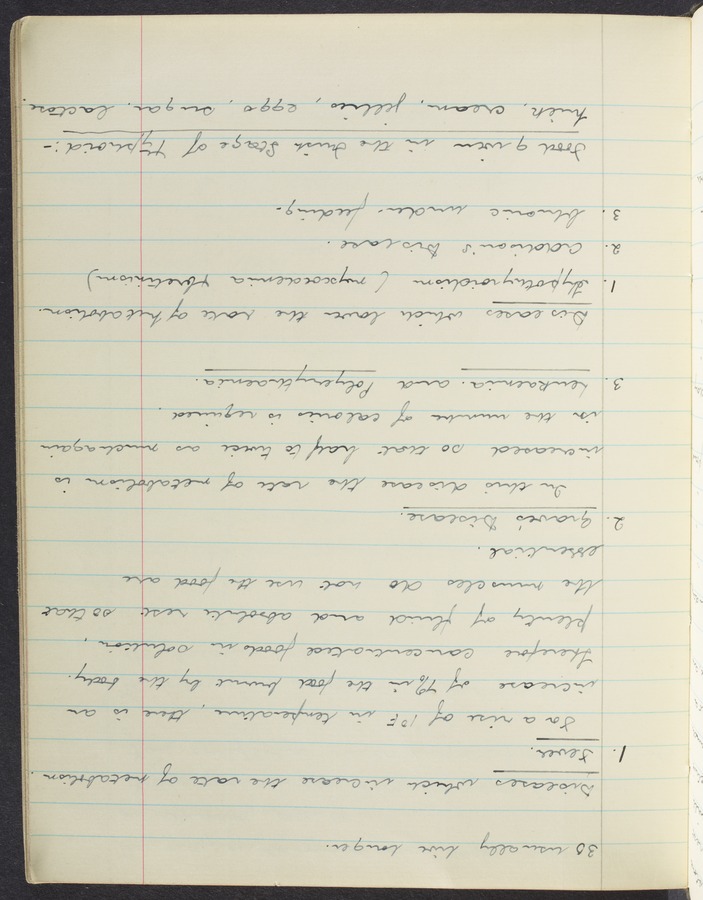 30 usually live longer.
Diseases which increase the rate of metabolism.
1. Fever.
In a rise of 1°F in temperature, there is an
increase of 7% in the food burnt by the body.
Therefore concentrated foods in solution,
plenty of fluid and absolute rest so that
the muscles do not use the food are
essential.
2. Grave's Disease.
In this disease the rate of metabolism is
increased so that half to twice as much again
in the number of calories is required.
3. Leukaemia and Polycythaemia.
Diseases which lower the rate of Metabolism.
1. Hypothyroidism (myxoedemia & cretinism)
2. Addison's Disease.
3. Chronic under-feeding.
Food given in the First Stage of Typhoid:-
Milk, cream, jellies, eggs, sugar, lactose.